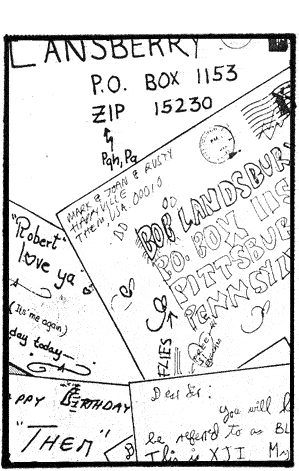 LANSBERRY
P.O. BOX 1153
ZIP 15230
Pgh, Pa
MARK & JOAN & RUSTY
HAPPYVILLE
THEM, USA. 00010
BOB LANDSBUR
P.O. BOX 115
PITTSBUR
PENNSYLV
FLIES
"Robert"
love ya
(Its me again)
day today—
PPY BIRTHDAY
"THEM"
Dear Sir:
You will b
be referred to as BL
This is XJI M